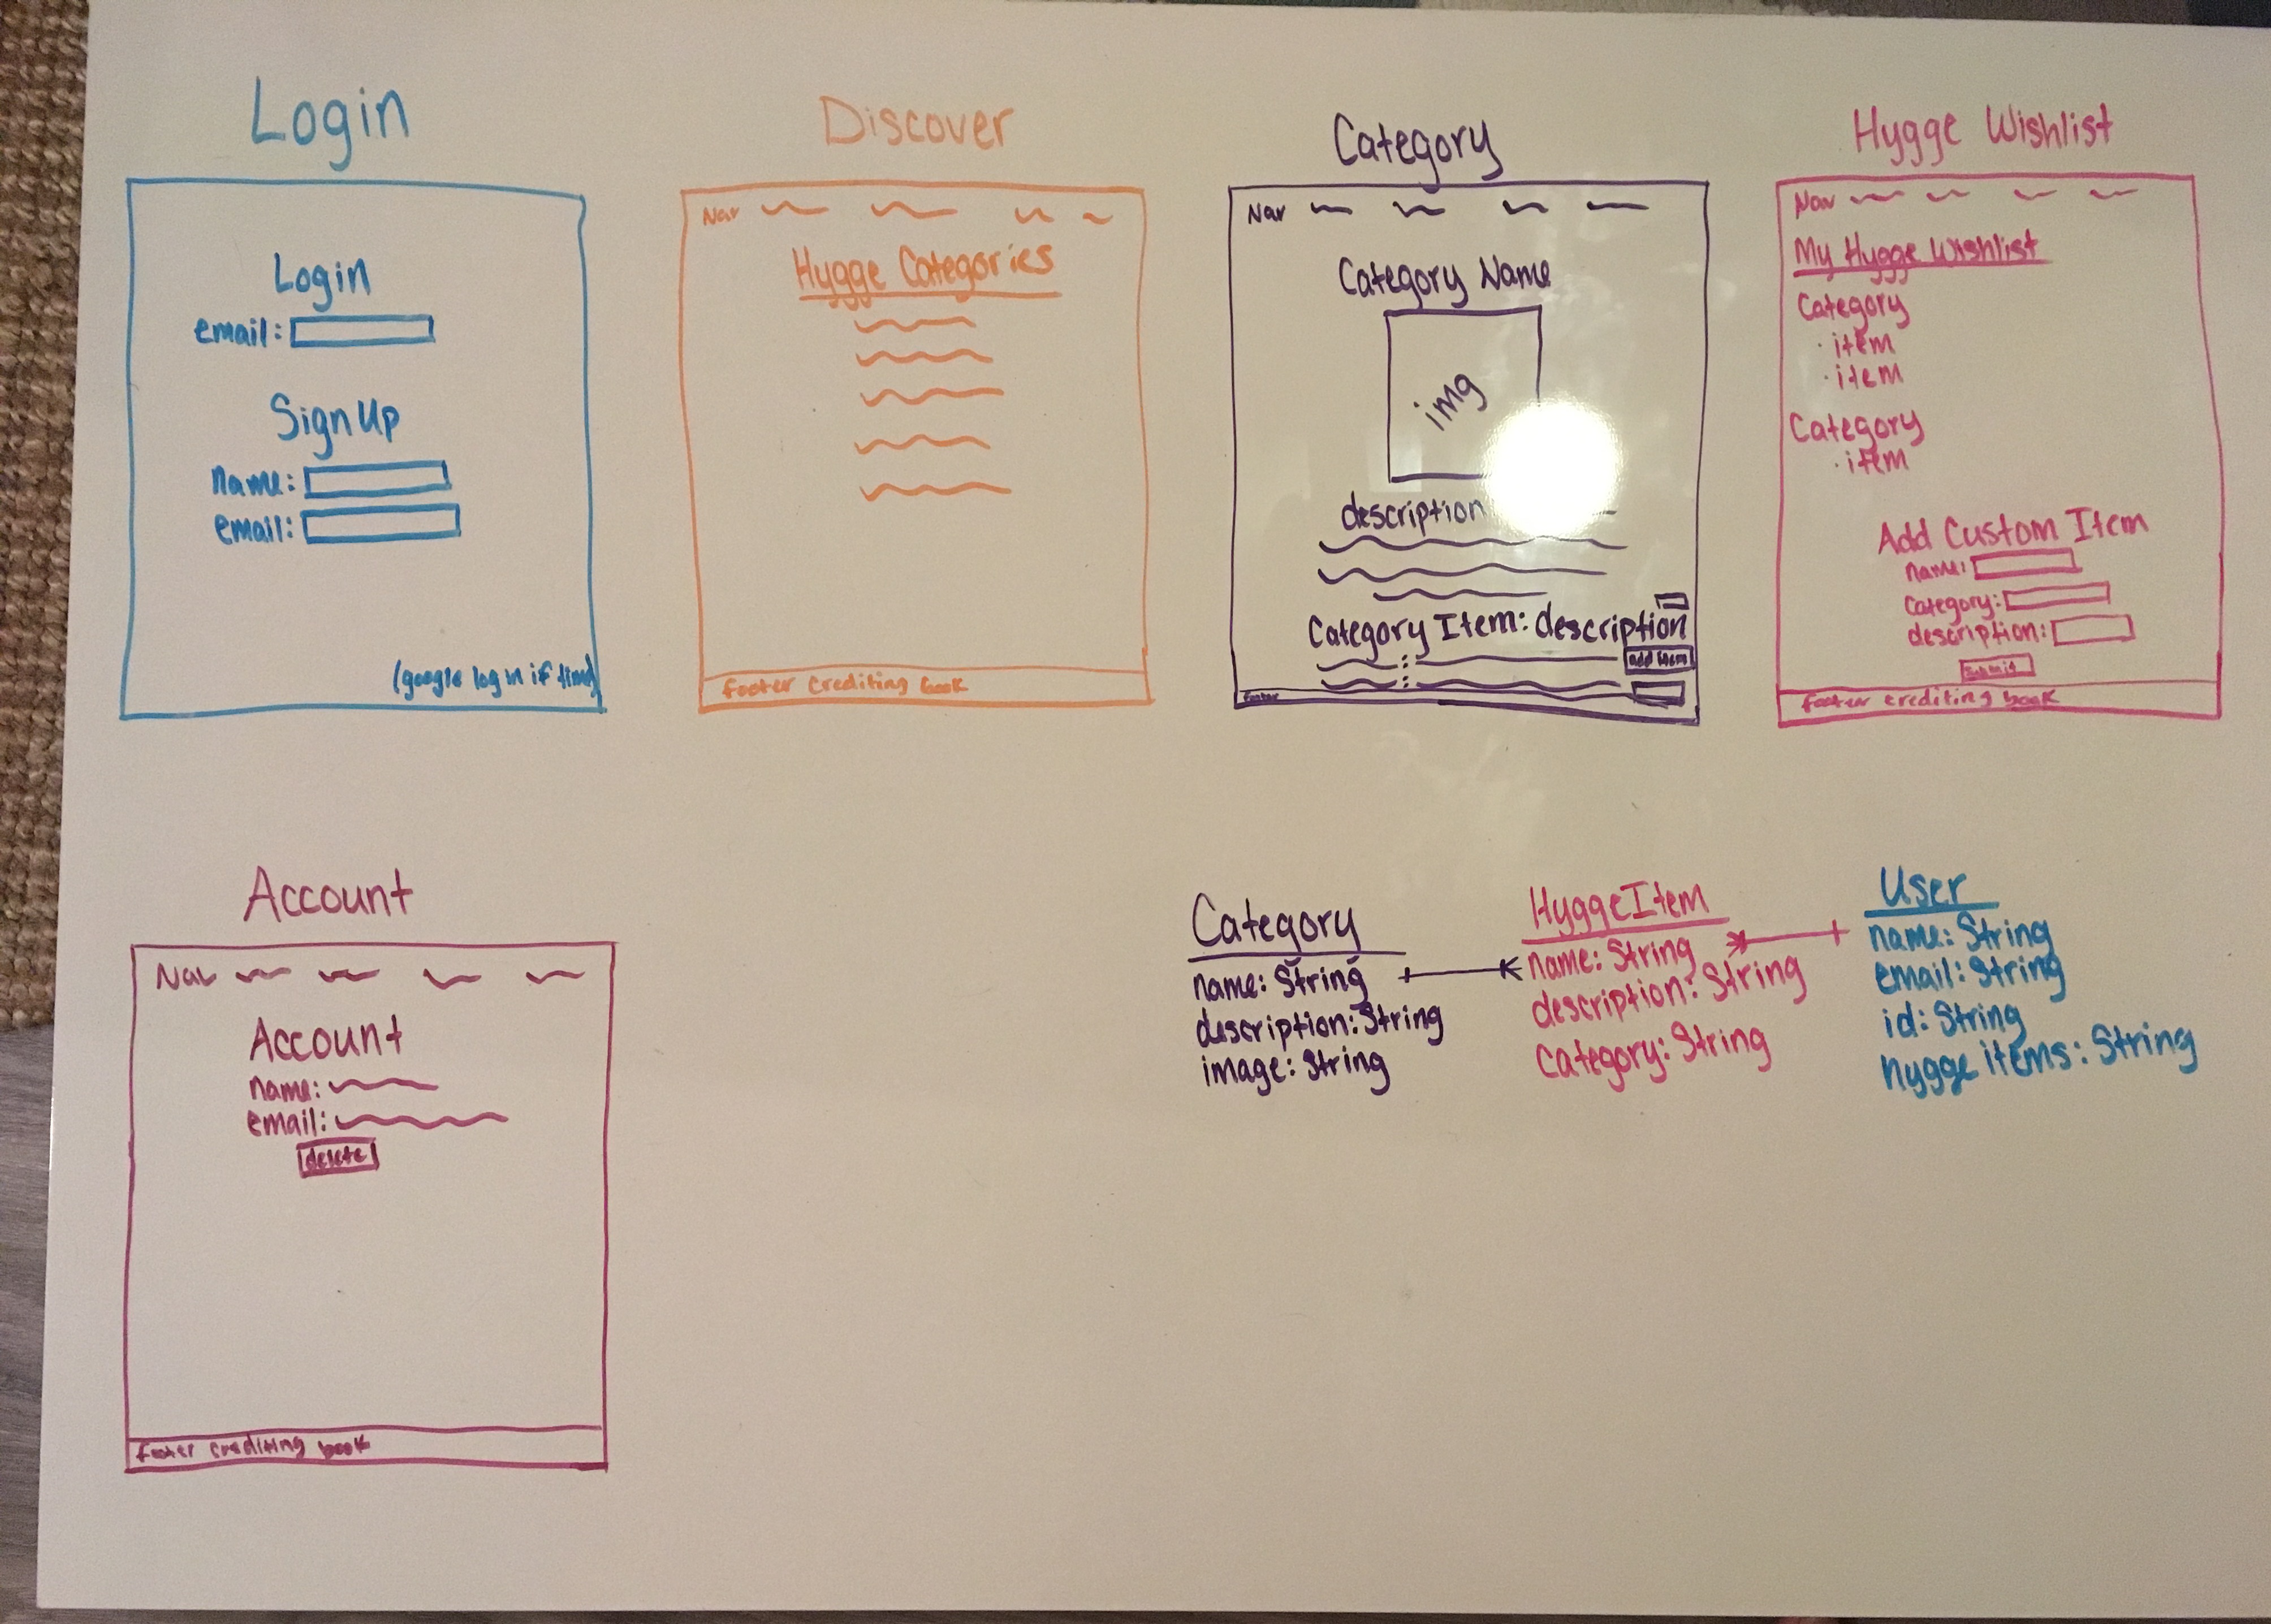 Login
Login
email:
Sign Up
name:
email:
(google log in if time)
Discover
Nav
Hygge Categories
footer crediting book
Category
Nav
Category Name
img
description
Category Item: description
add item
footer
Hygge Wishlist
Nav
My Hygge Wishlist
Category
· item
· item
Category
· item
Add Custom Item
name:
Category:
description:
submit
footer crediting book
Account
Nav
Account
name:
email:
delete
footer crediting book
Category
name: String
description: String
image: String
HyggeItem
name: String
description: String
Category: String
User
name: String
email: String
id: String
hygge items: String